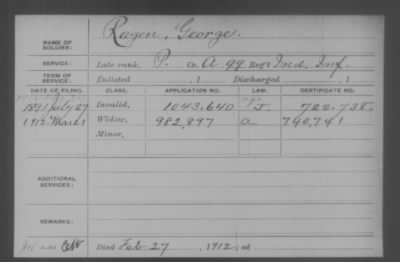 NAME OF SOLDIER: Ragen, George.
SERVICE: Late rank, P. Co. A 99 Reg't Ind. Inf.
TERM OF SERVICE: Enlisted , 1 Discharged , 1
DATE OF FILING. CLASS. APPLICATION NO. LAW. CERTIFICATE NO.
1891 July 27 Invalid, 1043.640 J. 722.738.
1912 Mar 1 Widow, 982,897 a. 740,741
Minor,
ADDITIONAL SERVICES:
REMARKS:
Died Feb 27, 1912, at